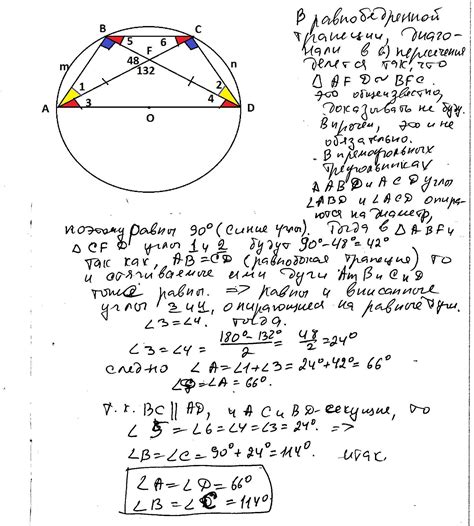 B
C
5
6
F
m
48
n
132
1
2
A
3
4
D
O
В равнобедренной
трапеции, диаго-
нали в (.) пересечения
делятся так, что
△ AFD ∾ BFC.
это общеизвестно,
доказывать не буду.
Впрочем, это и не
обязательно.
В прямоугольных
треугольниках
△ ABD и ACD углы
∠ABD и ∠ACD опира-
ются на диаметр,
поэтому равны 90° (синие углы). Тогда в △ ABF и
△ CFD углы 1 и 2 будут 90°-48° = 42°
так как, AB = CD (равнобокая трапеция) то
и стягиваемые ими дуги AmB и CnD
тоже равны. => равны и вписанные
углы 3 и 4, опирающиеся на равные дуги.
∠3 = ∠4. Тогда.
∠3 = ∠4 = 180°-132° / 2 = 48 / 2 = 24°
следно ∠A = ∠1+∠3 = 24°+42° = 66°
∠D = ∠A = 66°.
т.к. BC || AD, и AC и BD - секущие, то
∠5 = ∠6 = ∠4 = ∠3 = 24°. =>
∠B = ∠C = 90°+24° = 114°. итак
∠A = ∠D = 66°
∠B = ∠C = 114°